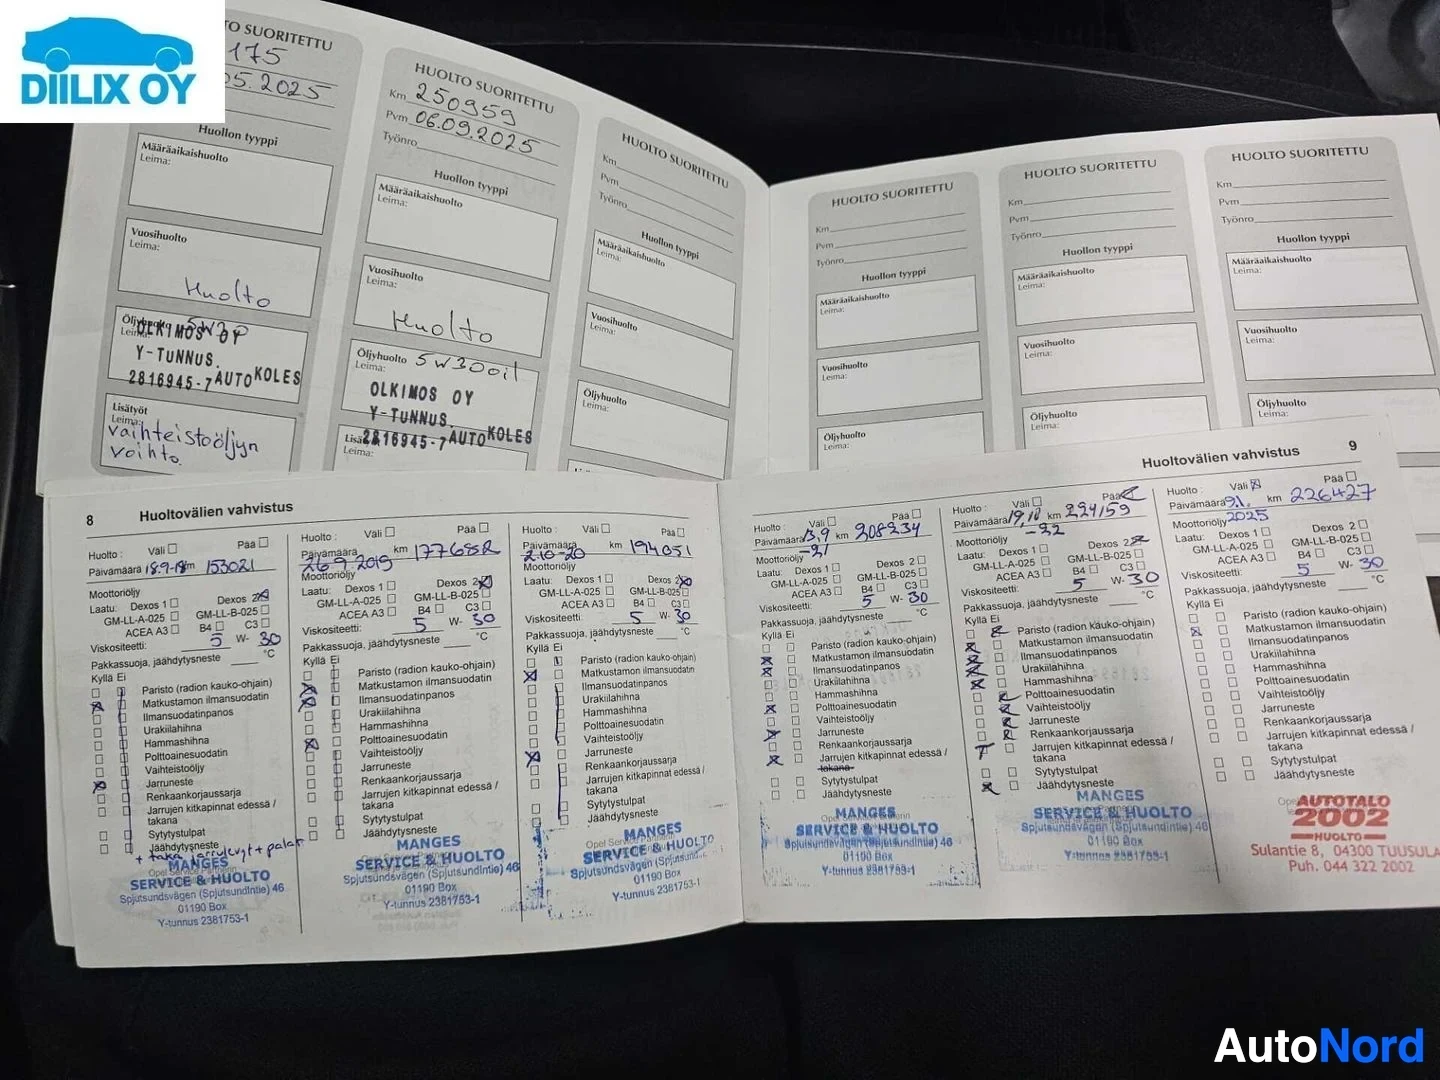 DIILIX OY
TO SUORITETTU
175
05.2025
Huollon tyyppi
Määräaikaishuolto
Leima:
Vuosihuolto
Leima:
Huolto
Öljyhuolto 5W30
OLKIMOS OY
Y-TUNNUS.
2816945-7 AUTO KOLES
Lisätyöt
Leima:
vaihteistoöljyn
voihto.
HUOLTO SUORITETTU
Km 250959
Pvm 06.09.2025
Työnro
Huollon tyyppi
Määräaikaishuolto
Leima:
Vuosihuolto
Leima:
Huolto
Öljyhuolto 5W30 oil
OLKIMOS OY
Y-TUNNUS.
2816945-7 AUTO KOLES
Leima:
HUOLTO SUORITETTU
Km
Pvm
Työnro
Huollon tyyppi
Määräaikaishuolto
Leima:
Vuosihuolto
Leima:
Öljyhuolto
Leima:
HUOLTO SUORITETTU
Km
Pvm
Työnro
Huollon tyyppi
Määräaikaishuolto
Leima:
Vuosihuolto
Leima:
Öljyhuolto
Leima:
HUOLTO SUORITETTU
Km
Pvm
Työnro
Huollon tyyppi
Määräaikaishuolto
Leima:
Vuosihuolto
Leima:
Öljyhuolto
HUOLTO SUORITETTU
Km
Pvm
Työnro
Huollon tyyppi
Määräaikaishuolto
Leima:
Vuosihuolto
Leima:
Öljyhuolto
Leima:
8 Huoltovälien vahvistus
Huolto : Väli Pää
Päivämäärä 18.9-18 km 153021
Moottoriöljy
Laatu: Dexos 1 Dexos 2
GM-LL-A-025 GM-LL-B-025
ACEA A3 B4 C3
Viskositeetti: 5 W- 30
Pakkassuoja, jäähdytysneste °C
Kyllä Ei
Paristo (radion kauko-ohjain)
Matkustamon ilmansuodatin
Ilmansuodatinpanos
Urakiilahihna
Hammashihna
Polttoainesuodatin
Vaihteistoöljy
Jarruneste
Renkaankorjaussarja
Jarrujen kitkapinnat edessä /
takana
Sytytystulpat
Jäähdytysneste
MANGES
SERVICE & HUOLTO
Spjutsundsvägen (Spjutsundintie) 46
01190 Box
Y-tunnus 2381753-1
Huolto : Väli Pää
Päivämäärä 26-9-2019 km 177682
Moottoriöljy
Laatu: Dexos 1 Dexos 2
GM-LL-A-025 GM-LL-B-025
ACEA A3 B4 C3
Viskositeetti: 5 W- 30
Pakkassuoja, jäähdytysneste °C
Kyllä Ei
Paristo (radion kauko-ohjain)
Matkustamon ilmansuodatin
Ilmansuodatinpanos
Urakiilahihna
Hammashihna
Polttoainesuodatin
Vaihteistoöljy
Jarruneste
Renkaankorjaussarja
Jarrujen kitkapinnat edessä /
takana
Sytytystulpat
Jäähdytysneste
MANGES
SERVICE & HUOLTO
Spjutsundsvägen (Spjutsundintie) 46
01190 Box
Y-tunnus 2381753-1
Huolto : Väli Pää
Päivämäärä 2.10-20 km 194051
Moottoriöljy
Laatu: Dexos 1 Dexos 2
GM-LL-A-025 GM-LL-B-025
ACEA A3 B4 C3
Viskositeetti: 5 W- 30
Pakkassuoja, jäähdytysneste °C
Kyllä Ei
Paristo (radion kauko-ohjain)
Matkustamon ilmansuodatin
Ilmansuodatinpanos
Urakiilahihna
Hammashihna
Polttoainesuodatin
Vaihteistoöljy
Jarruneste
Renkaankorjaussarja
Jarrujen kitkapinnat edessä /
takana
Sytytystulpat
Jäähdytysneste
MANGES
SERVICE & HUOLTO
01190 Box
Y-tunnus 2381753-1
Huoltovälien vahvistus 9
Huolto : Väli Pää
Päivämäärä 13.9 -21 km 208234
Moottoriöljy
Laatu: Dexos 1 Dexos 2
GM-LL-A-025 GM-LL-B-025
ACEA A3 B4 C3
Viskositeetti: 5 W- 30
Pakkassuoja, jäähdytysneste °C
Kyllä Ei
Paristo (radion kauko-ohjain)
Matkustamon ilmansuodatin
Ilmansuodatinpanos
Urakiilahihna
Hammashihna
Polttoainesuodatin
Vaihteistoöljy
Jarruneste
Renkaankorjaussarja
Jarrujen kitkapinnat edessä /
takana
Sytytystulpat
Jäähdytysneste
MANGES
SERVICE & HUOLTO
Spjutsundsvägen (Spjutsundintie) 46
01190 Box
Y-tunnus 2381753-1
Huolto : Väli Pää
Päivämäärä 19.10 -22 km 224159
Moottoriöljy
Laatu: Dexos 1 Dexos 2
GM-LL-A-025 GM-LL-B-025
ACEA A3 B4 C3
Viskositeetti: 5 W- 30
Pakkassuoja, jäähdytysneste °C
Kyllä Ei
Paristo (radion kauko-ohjain)
Matkustamon ilmansuodatin
Ilmansuodatinpanos
Urakiilahihna
Hammashihna
Polttoainesuodatin
Vaihteistoöljy
Jarruneste
Renkaankorjaussarja
Jarrujen kitkapinnat edessä /
takana
Sytytystulpat
Jäähdytysneste
MANGES
SERVICE & HUOLTO
Spjutsundsvägen (Spjutsundintie) 46
01190 Box
Y-tunnus 2381753-1
Huolto : Väli Pää
Päivämäärä 9.1. km 226427
Moottoriöljy 2025
Laatu: Dexos 1 Dexos 2
GM-LL-A-025 GM-LL-B-025
ACEA A3 B4 C3
Viskositeetti: 5 W- 30
Pakkassuoja, jäähdytysneste °C
Kyllä Ei
Paristo (radion kauko-ohjain)
Matkustamon ilmansuodatin
Ilmansuodatinpanos
Urakiilahihna
Hammashihna
Polttoainesuodatin
Vaihteistoöljy
Jarruneste
Renkaankorjaussarja
Jarrujen kitkapinnat edessä /
takana
Sytytystulpat
Jäähdytysneste
AUTOTALO
2002
HUOLTO
Sulantie 8, 04300 TUUSULA
Puh. 044 322 2002
AutoNord